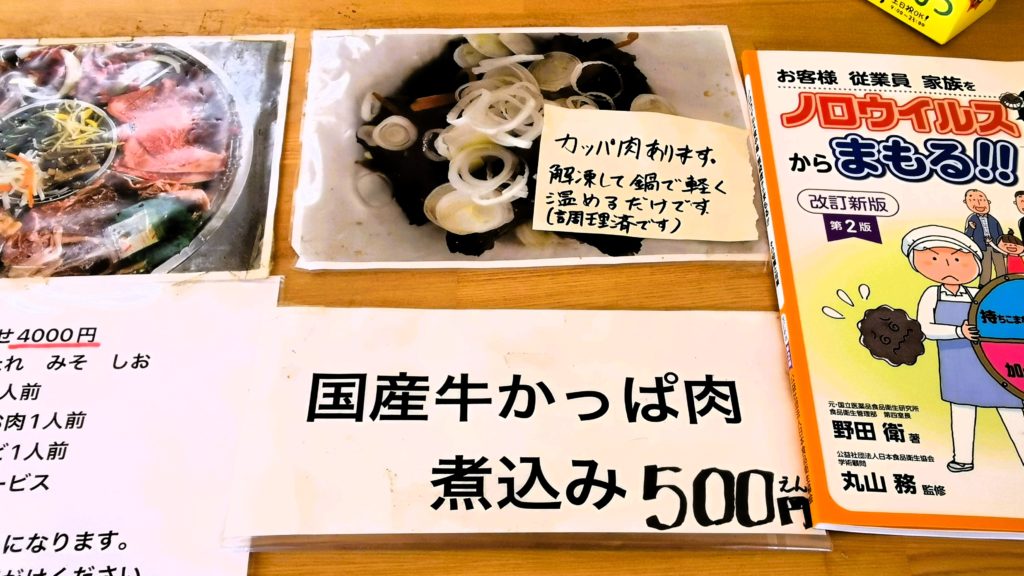 カッパ肉あります。
解凍して鍋で軽く
温めるだけです。
(調理済です)
国産牛かっぱ肉
煮込み 500円
えん
せ4000円
たれ みそ しお
人前
お肉1人前
ど1人前
ービス
になります。
がけください
土日祝OK!
9:00~21:00
お客様 従業員 家族を
ノロウイルス
から まもる!!
改訂新版
第2版
持ちこま
加
元・国立医薬品食品衛生研究所
食品衛生管理部 第四室長
野田 衛 著
公益社団法人日本食品衛生協会
学術顧問
丸山 務 監修